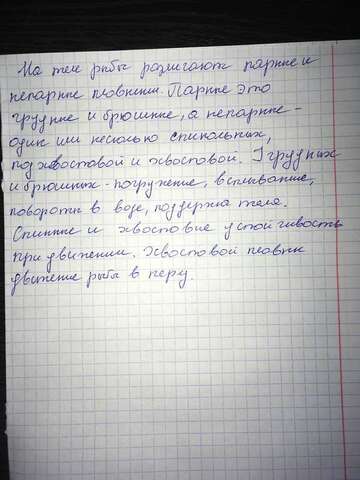 На теле рыбы розлигают парные и
непарные плавники. Парные это
грудные и брюшные, а непарные -
один или несколько спинольных,
подхвостовой и хвостовой. Грудных
и брюшных - погружение, всплывание,
повороты в воде, поддержка тела.
Спинные и хвостовые устойчивость
при движении. Хвостовой плавник
движение рыбы в перу.